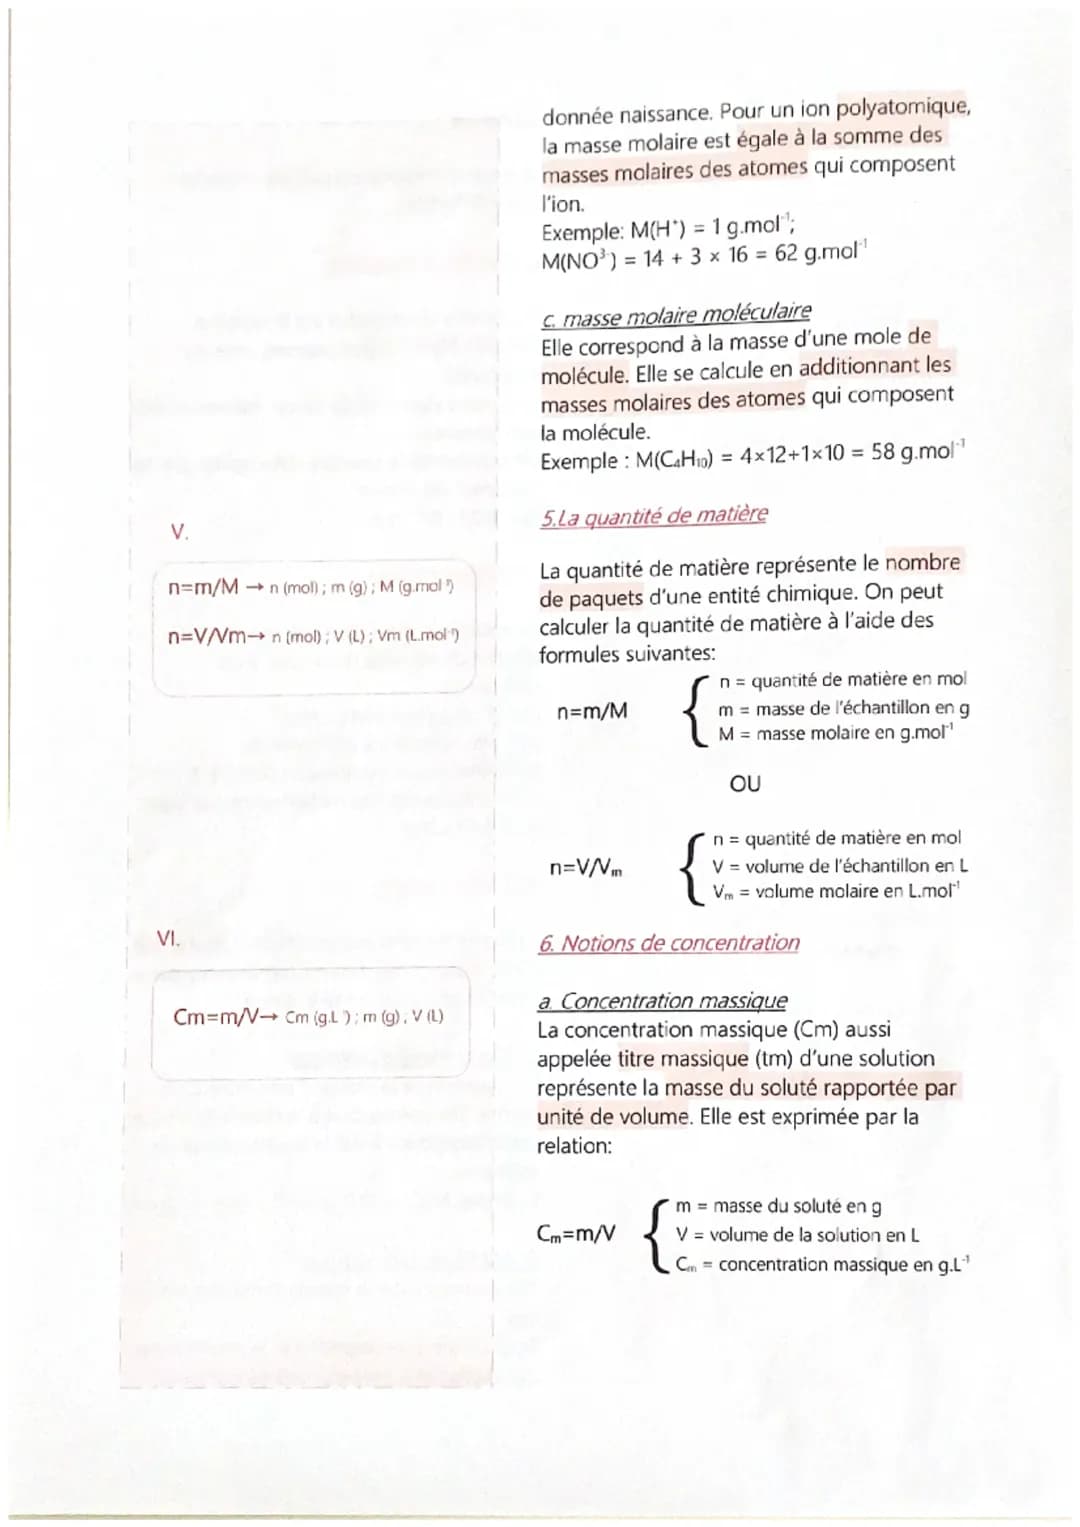 donnée naissance. Pour un ion polyatomique,
la masse molaire est égale à la somme des
masses molaires des atomes qui composent
l'ion.
Exemple: M(H⁺) = 1 g.mol⁻¹;
M(NO³⁻) = 14 + 3 × 16 = 62 g.mol⁻¹
c. masse molaire moléculaire
Elle correspond à la masse d'une mole de
molécule. Elle se calcule en additionnant les
masses molaires des atomes qui composent
la molécule.
Exemple : M(C₄H₁₀) = 4×12+1×10 = 58 g.mol⁻¹
V.
n=m/M → n (mol) ; m (g) ; M (g.mol⁻¹)
n=V/Vm→ n (mol) ; V (L) ; Vm (L.mol⁻¹)
5.La quantité de matière
La quantité de matière représente le nombre
de paquets d'une entité chimique. On peut
calculer la quantité de matière à l'aide des
formules suivantes:
n=m/M
n = quantité de matière en mol
m = masse de l'échantillon en g
M = masse molaire en g.mol⁻¹
OU
n=V/Vₘ
n = quantité de matière en mol
V = volume de l'échantillon en L
Vₘ = volume molaire en L.mol⁻¹
VI.
Cm=m/V→ Cm (g.L⁻¹) ; m (g) , V (L)
6. Notions de concentration
a. Concentration massique
La concentration massique (Cm) aussi
appelée titre massique (tm) d'une solution
représente la masse du soluté rapportée par
unité de volume. Elle est exprimée par la
relation:
Cₘ=m/V
m = masse du soluté en g
V = volume de la solution en L
Cₘ = concentration massique en g.L⁻¹